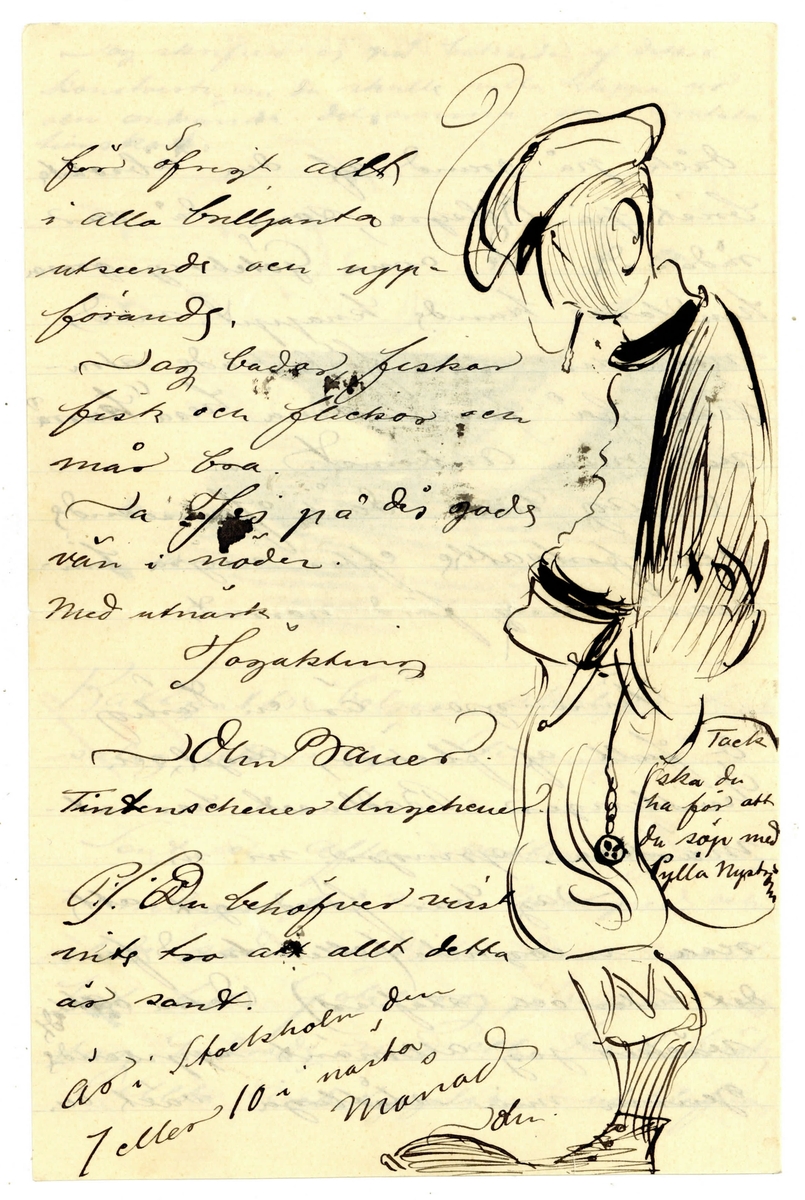 för öfrigt allt
i alla briljanta
utseende och upp-
förande.
Jag badar, fiskar
fisk och flickor och
mår bra.
Ja Hej på dig gode
vän i nöden.
Med utmärkt
Högaktning
John Bauer.
Tintenscheuer Ungeheuer.
P.S. Du behöfver visst
inte tro att allt detta
är sant.
Är i Stockholm den
7 eller 10 i nästa
Månad
John.
Tack
ska du
ha för att
du söp med
Pylla Nyström